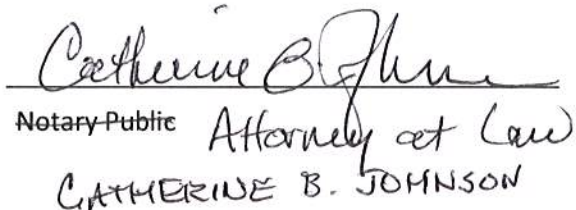 Catherine B Johnson
Notary Public Attorney at Law
CATHERINE B. JOHNSON